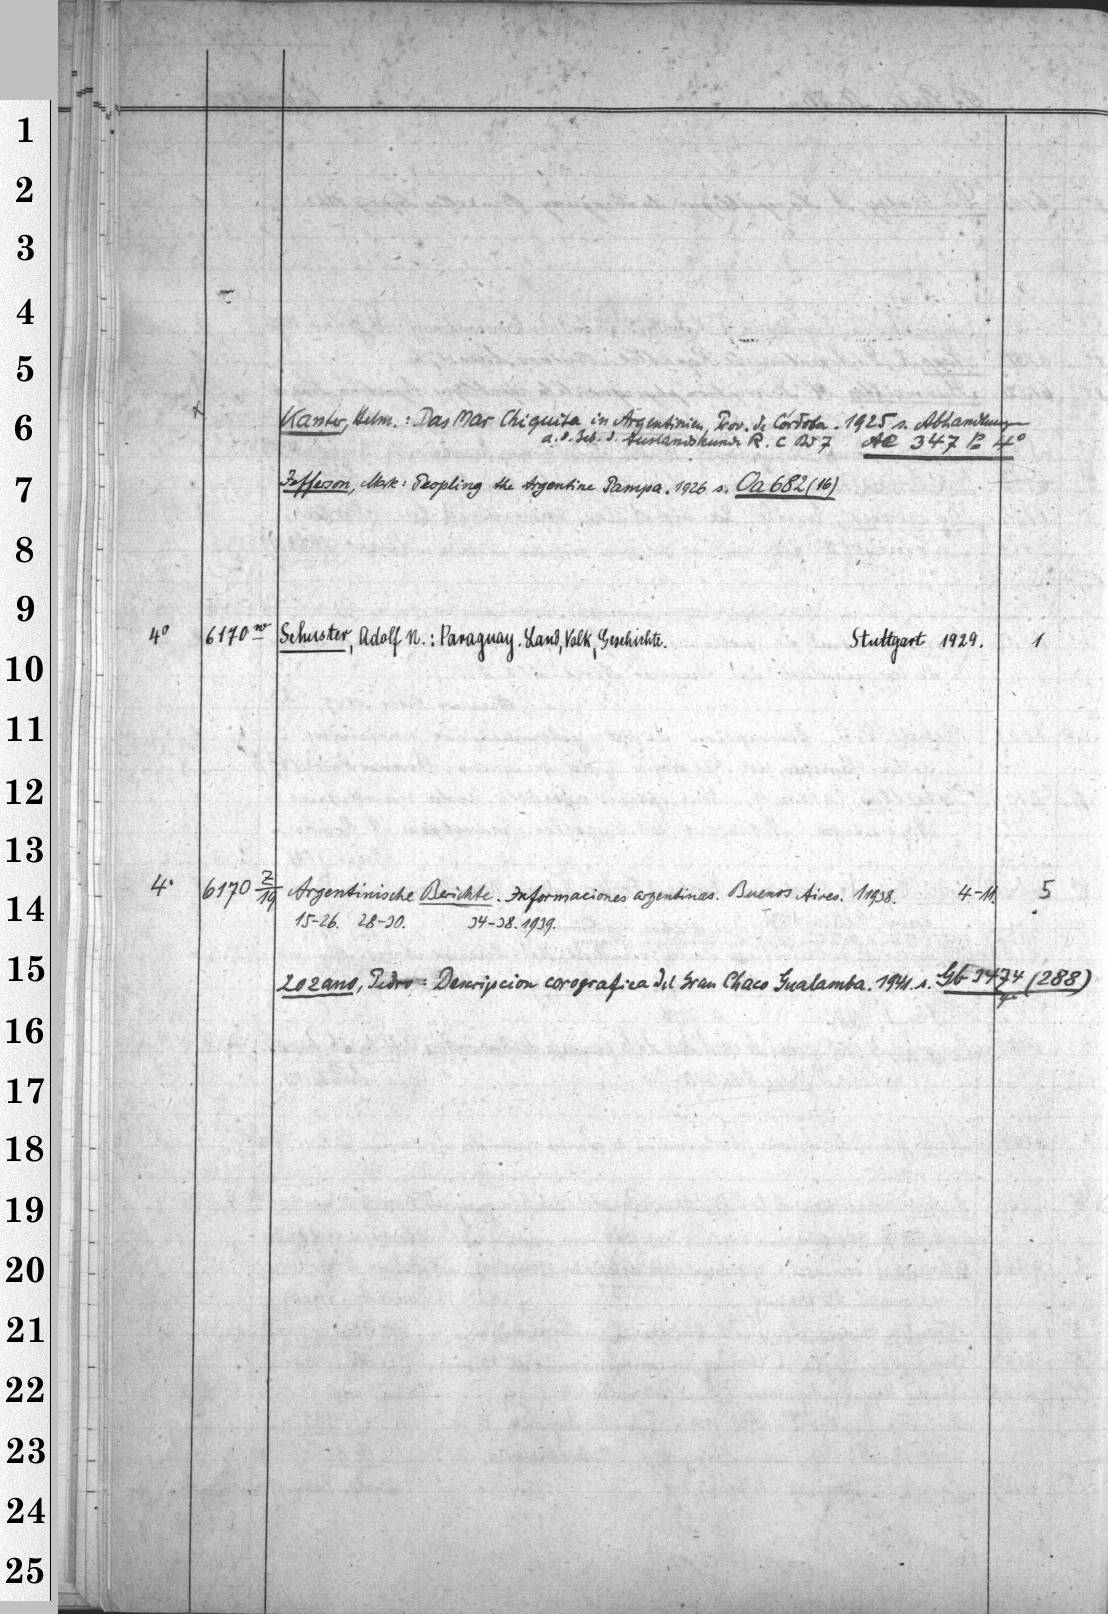 1
2
3
4
5
6
Kanter, Helm.: Das Mar Chiquita in Argentinien, Prov. de Córdoba. 1925 s. Abhandlungen
a. d. Geb. d. Auslandskunde R. C Bd 7 AE 347 4°
7
Jefferson, Mark: Peopling the Argentine Pampa. 1926 s. Oa 682 (16)
8
9
4° 6170 w Schuster, Adolf N.: Paraguay. Land, Volk, Geschichte. Stuttgart 1929. 1
10
11
12
13
4° 6170 z/19 Argentinische Berichte. Informaciones argentinas. Buenos Aires. 1 1938. 4-11. 5
14
15-26. 28-30. 34-38. 1939.
15
Lozano, Pedro: Descripcion corografica del Gran Chaco Gualamba. 1941. s. Gb 3474 (288)
4
16
17
18
19
20
21
22
23
24
25